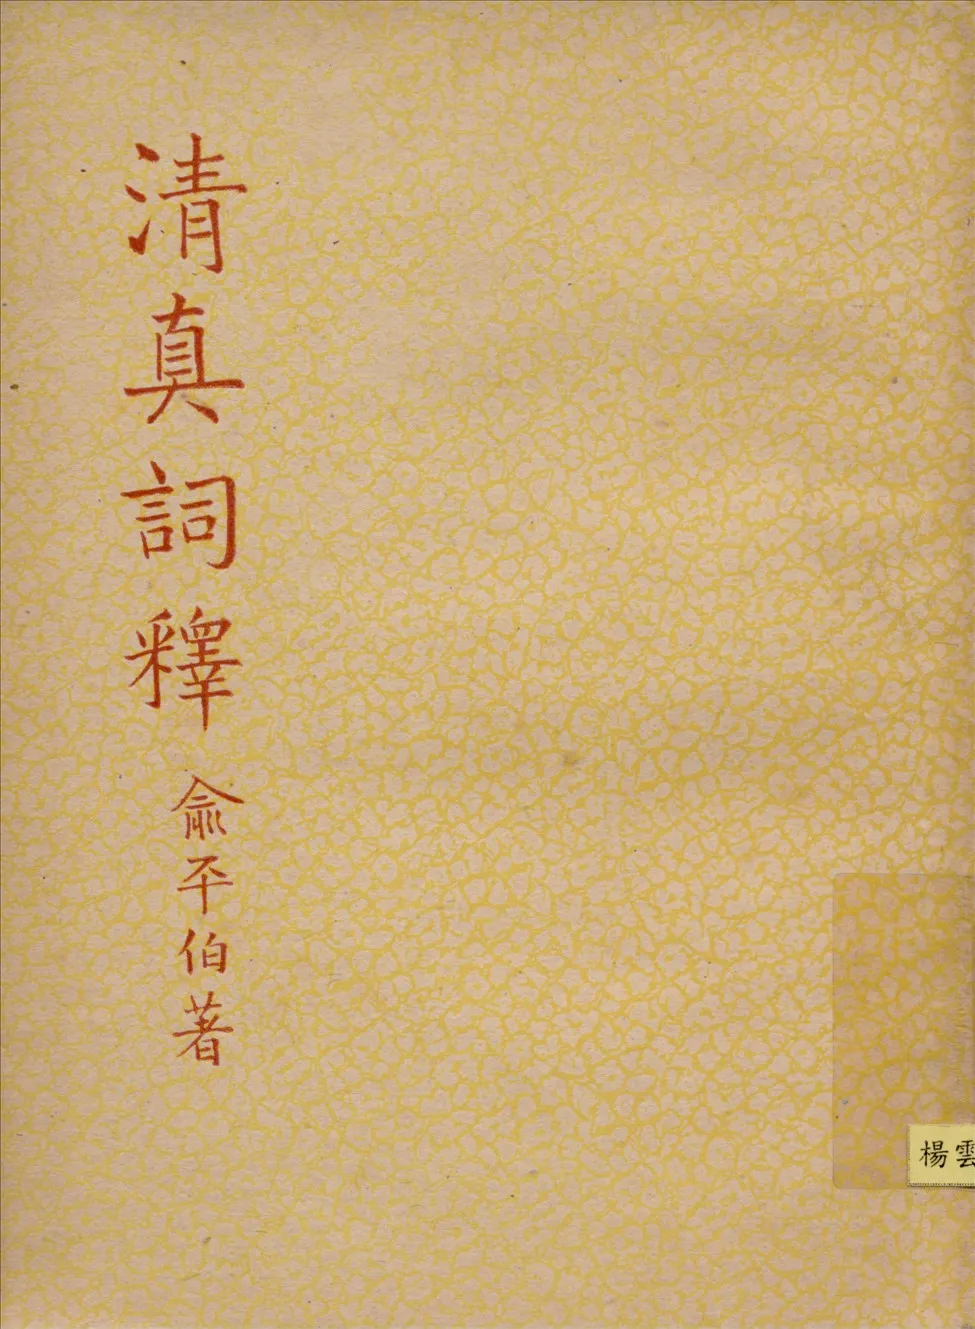 清真詞釋
俞平伯著
楊雲